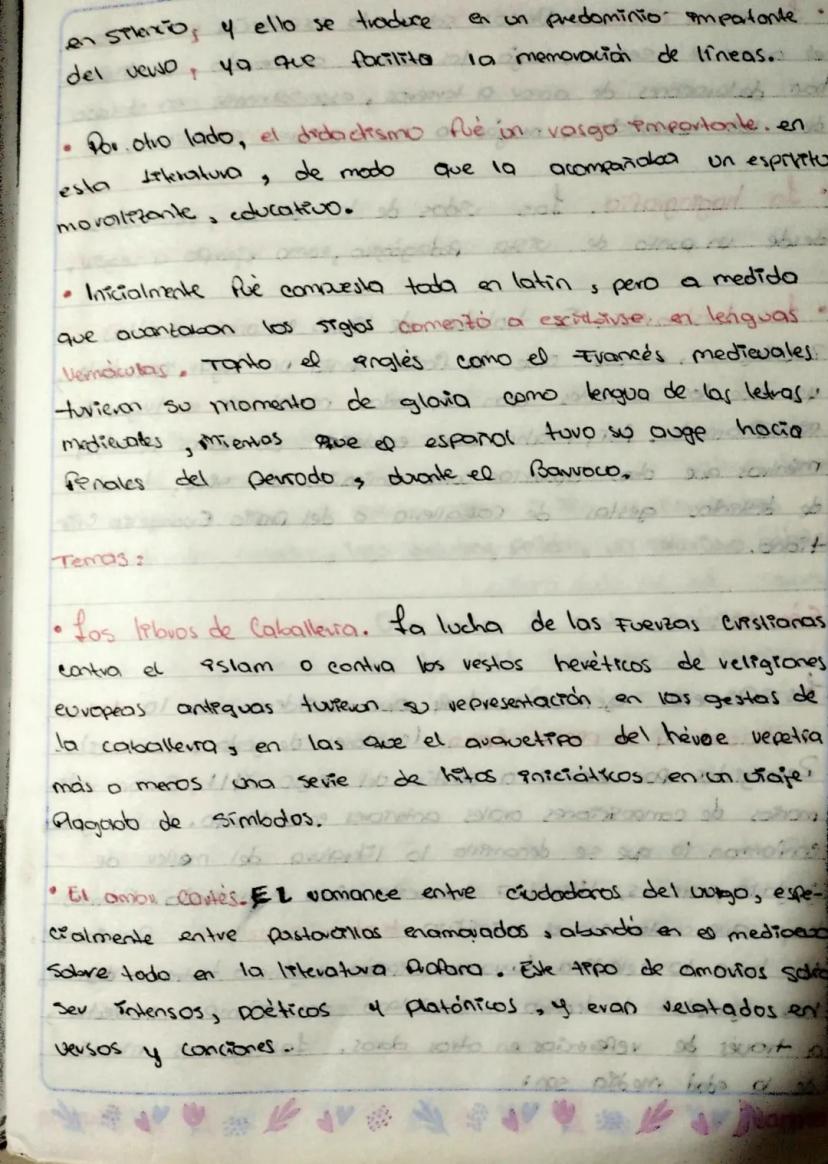 en silencio, y ello se traduce en un predominio importante
del verso, ya que facilita la memoración de líneas.
• Por otro lado, el didactismo fué un rasgo importante en
esta literatura, de modo que la acompañaba un espíritu
moralizante, educativo.
• Inicialmente fué compuesta toda en latín, pero a medida
que avanzaban los siglos comenzó a escribirse en lenguas
vernáculas. Tanto el inglés como el Francés medievales
tuvieron su momento de gloria como lengua de las letras
medievales, mientras que el español tuvo su auge hacia
finales del período, durante el Barroco.
Temas:
• Los libros de Caballería. La lucha de las Fuerzas Cristianas
contra el islam o contra los restos heréticos de religiones
europeas antiguas tuvieron su representación en las gestas de
la caballería, en las que el arquetipo del héroe repetía
más o menos una serie de hitos iniciáticos en un viaje
Plagado de símbolos.
• El amor cortés. El romance entre ciudadanos del vulgo, espe-
cialmente entre pastorcillos enamorados, abundó en el medioevo
sobre todo en la literatura Profana. Este tipo de amoríos solía
ser intensos, poéticos y platónicos, y eran relatados en
versos y canciones.